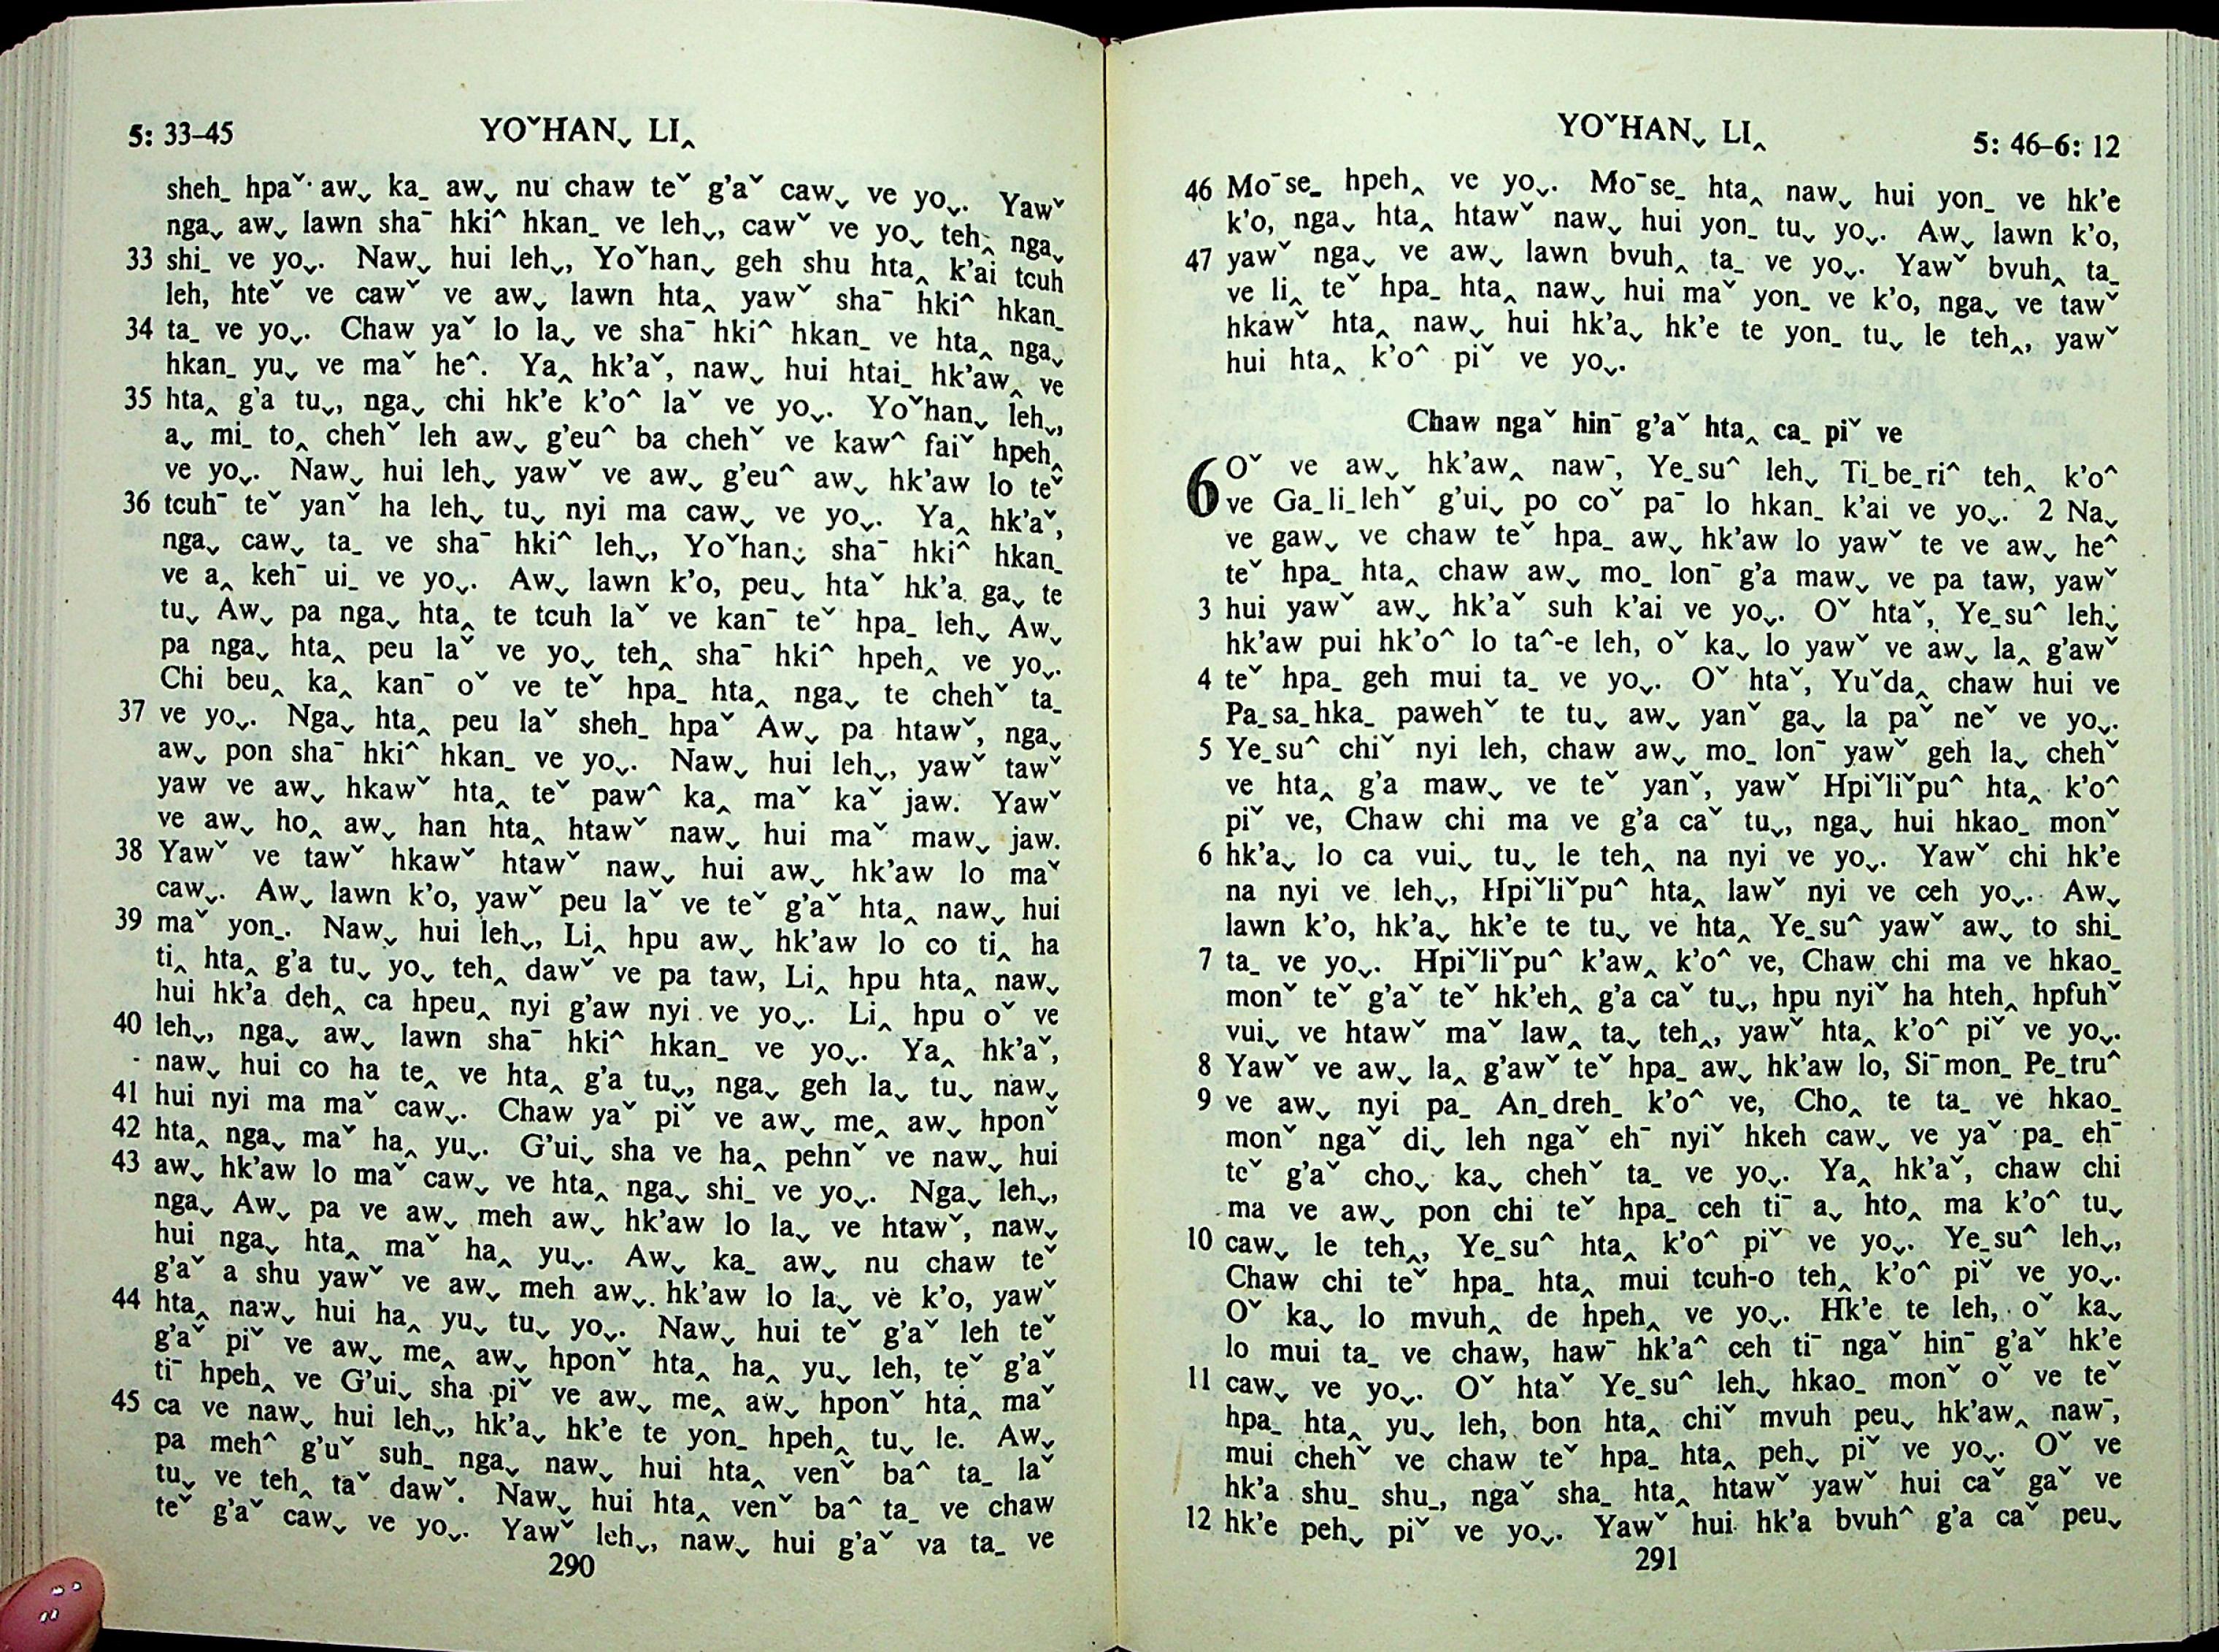 5: 33–45
YOˇHANˬ LI‸
sheh_ hpaˇ awˬ ka_ awˬ nu chaw teˇ g’aˇ cawˬ ve yoˬ. Yawˇ
ngaˬ awˬ lawn shaˉ hki^ hkan_ ve lehˬ, cawˇ ve yoˬ teh‸ ngaˬ
33 shi_ ve yoˬ. Nawˬ hui lehˬ, Yoˇhanˬ geh shu hta‸ k’ai tcuh
leh, hteˇ ve cawˇ ve awˬ lawn hta‸ yawˇ shaˉ hki^ hkan_
34 ta_ ve yoˬ. Chaw yaˇ lo laˬ ve shaˉ hki^ hkan_ ve hta‸ ngaˬ
hkan_ yuˬ ve maˇ he^. Ya‸ hk’aˇ, nawˬ hui htai_ hk’aw‸ ve
35 hta‸ g’a tuˬ, ngaˬ chi hk’e k’o^ laˇ ve yoˬ. Yoˇhanˬ lehˬ,
aˬ mi_ to‸ chehˇ leh awˬ g’eu^ ba chehˇ ve kaw^ faiˇ hpeh‸
ve yoˬ. Nawˬ hui lehˬ yawˇ ve awˬ g’eu^ awˬ hk’aw lo teˇ
36 tcuhˉ teˇ yanˇ ha lehˬ tuˬ nyi ma cawˬ ve yoˬ. Ya‸ hk’aˇ,
ngaˬ cawˬ ta_ ve shaˉ hki^ lehˬ, Yoˇhanˬ shaˉ hki^ hkan_
ve a‸ kehˉ ui_ ve yoˬ. Awˬ lawn k’o, peuˬ htaˇ hk’a gaˬ te
tuˬ Awˬ pa ngaˬ hta‸ te tcuh laˇ ve kanˉ teˇ hpa_ lehˬ Awˬ
pa ngaˬ hta‸ peu laˇ ve yoˬ teh‸ shaˉ hki^ hpeh‸ ve yoˬ.
Chi beu‸ ka‸ kanˉ oˇ ve teˇ hpa_ hta‸ ngaˬ te chehˇ ta_
37 ve yoˬ. Ngaˬ hta‸ peu laˇ sheh_ hpaˇ Awˬ pa htawˇ, ngaˬ
awˬ pon shaˉ hki^ hkan_ ve yoˬ. Nawˬ hui lehˬ, yawˇ tawˇ
yaw ve awˬ hkawˇ hta‸ teˇ paw^ ka‸ maˇ kaˇ jaw. Yawˇ
ve awˬ ho‸ awˬ han hta‸ htawˇ nawˬ hui maˇ mawˬ jaw.
38 Yawˇ ve tawˇ hkawˇ htawˇ nawˬ hui awˬ hk’aw lo maˇ
cawˬ. Awˬ lawn k’o, yawˇ peu laˇ ve teˇ g’aˇ hta‸ nawˬ hui
39 maˇ yon_. Nawˬ hui lehˬ, Li‸ hpu awˬ hk’aw lo co ti‸ ha
ti‸ hta‸ g’a tuˬ yoˬ teh‸ dawˇ ve pa taw, Li‸ hpu hta‸ nawˬ
hui hk’a deh‸ ca hpeu‸ nyi g’aw nyi ve yoˬ. Li‸ hpu oˇ ve
40 lehˬ, ngaˬ awˬ lawn shaˉ hki^ hkan_ ve yoˬ. Ya‸ hk’aˇ,
nawˬ hui co ha te‸ ve hta‸ g’a tuˬ, ngaˬ geh laˬ tuˬ nawˬ
41 hui nyi ma maˇ cawˬ. Chaw yaˇ piˇ ve awˬ me‸ awˬ hponˇ
42 hta‸ ngaˬ maˇ ha‸ yuˬ. G’uiˬ sha ve ha‸ pehnˇ ve nawˬ hui
43 awˬ hk’aw lo maˇ cawˬ ve hta‸ ngaˬ shi_ ve yoˬ. Ngaˬ lehˬ,
ngaˬ Awˬ pa ve awˬ meh awˬ hk’aw lo laˬ ve htawˇ, nawˬ
hui ngaˬ hta‸ maˇ ha‸ yuˬ. Awˬ ka_ awˬ nu chaw teˇ
g’aˇ a shu yawˇ ve awˬ meh awˬ hk’aw lo laˬ ve k’o, yawˇ
44 hta‸ nawˬ hui ha‸ yuˬ tuˬ yoˬ. Nawˬ hui teˇ g’aˇ leh teˇ
g’aˇ piˇ ve awˬ me‸ awˬ hponˇ hta‸ ha‸ yuˬ leh, teˇ g’aˇ
tiˉ hpeh‸ ve G’uiˬ sha piˇ ve awˬ me‸ awˬ hponˇ hta‸ maˇ
45 ca ve nawˬ hui lehˬ, hk’aˬ hk’e te yon_ hpeh‸ tuˬ le. Awˬ
pa meh^ g’uˇ suh_ ngaˬ nawˬ hui hta‸ venˇ ba^ ta_ laˇ
tuˬ ve teh‸ taˇ dawˇ. Nawˬ hui hta‸ venˇ ba^ ta_ ve chaw
teˇ g’aˇ cawˬ ve yoˬ. Yawˇ lehˬ, nawˬ hui g’aˇ va ta_ ve
290
YOˇHANˬ LI‸
5: 46–6: 12
46 Moˉse_ hpeh‸ ve yoˬ. Moˉse_ hta‸ nawˬ hui yon_ ve hk’e
k’o, ngaˬ hta‸ htawˇ nawˬ hui yon_ tuˬ yoˬ. Awˬ lawn k’o,
47 yawˇ ngaˬ ve awˬ lawn bvuh‸ ta_ ve yoˬ. Yawˇ bvuh‸ ta_
ve li‸ teˇ hpa_ hta‸ nawˬ hui maˇ yon_ ve k’o, ngaˬ ve tawˇ
hkawˇ hta‸ nawˬ hui hk’aˬ hk’e te yon_ tuˬ le teh‸, yawˇ
hui hta‸ k’o^ piˇ ve yoˬ.
Chaw ngaˇ hinˉ g’aˇ hta‸ ca_ piˇ ve
6 Oˇ ve awˬ hk’aw‸ nawˉ, Ye_su^ lehˬ Ti_be_ri^ teh‸ k’o^
ve Ga_li_lehˇ g’uiˬ po coˇ paˉ lo hkan_ k’ai ve yoˬ. 2 Naˬ
ve gawˬ ve chaw teˇ hpa_ awˬ hk’aw lo yawˇ te ve awˬ he^
teˇ hpa_ hta‸ chaw awˬ mo_ lonˉ g’a mawˬ ve pa taw, yawˇ
3 hui yawˇ awˬ hk’aˇ suh k’ai ve yoˬ. Oˇ htaˇ, Ye_su^ lehˬ
hk’aw pui hk’o^ lo ta^-e leh, oˇ kaˬ lo yawˇ ve awˬ la‸ g’awˇ
4 teˇ hpa_ geh mui ta_ ve yoˬ. Oˇ htaˇ, Yuˇda‸ chaw hui ve
Pa_sa_hka_ pawehˇ te tuˬ awˬ yanˇ gaˬ la paˇ neˇ ve yoˬ.
5 Ye_su^ chiˇ nyi leh, chaw awˬ mo_ lonˉ yawˇ geh laˬ chehˇ
ve hta‸ g’a mawˬ ve teˇ yanˇ, yawˇ Hpiˇliˇpu^ hta‸ k’o^
piˇ ve, Chaw chi ma ve g’a caˇ tuˬ, ngaˬ hui hkao_ monˇ
6 hk’aˬ lo ca vuiˬ tuˬ le teh‸ na nyi ve yoˬ. Yawˇ chi hk’e
na nyi ve lehˬ, Hpiˇliˇpu^ hta‸ lawˇ nyi ve ceh yoˬ. Awˬ
lawn k’o, hk’aˬ hk’e te tuˬ ve hta‸ Ye_su^ yawˇ awˬ to shi_
7 ta_ ve yoˬ. Hpiˇliˇpu^ k’aw‸ k’o^ ve, Chaw chi ma ve hkao_
monˇ teˇ g’aˇ teˇ hk’eh‸ g’a caˇ tuˬ, hpu nyiˇ ha hteh‸ hpfuhˇ
vuiˬ ve htawˇ maˇ law‸ taˬ teh‸, yawˇ hta‸ k’o^ piˇ ve yoˬ.
8 Yawˇ ve awˬ la‸ g’awˇ teˇ hpa_ awˬ hk’aw lo, Siˉmon_ Pe_tru^
9 ve awˬ nyi pa_ An_dreh_ k’o^ ve, Cho‸ te ta_ ve hkao_
monˇ ngaˇ diˬ leh ngaˇ ehˉ nyiˇ hkeh cawˬ ve yaˇ pa_ ehˉ
teˇ g’aˇ choˬ kaˬ chehˇ ta_ ve yoˬ. Ya‸ hk’aˇ, chaw chi
ma ve awˬ pon chi teˇ hpa_ ceh tiˉ aˬ hto‸ ma k’o^ tuˬ
10 cawˬ le teh‸, Ye_su^ hta‸ k’o^ piˇ ve yoˬ. Ye_su^ lehˬ,
Chaw chi teˇ hpa_ hta‸ mui tcuh-o teh‸ k’o^ piˇ ve yoˬ.
Oˇ kaˬ lo mvuh‸ de hpeh‸ ve yoˬ. Hk’e te leh, oˇ kaˬ
lo mui ta_ ve chaw, hawˉ hk’a^ ceh tiˉ ngaˇ hinˉ g’aˇ hk’e
11 cawˬ ve yoˬ. Oˇ htaˇ Ye_su^ lehˬ hkao_ monˇ oˇ ve teˇ
hpa_ hta‸ yuˬ leh, bon hta‸ chiˇ mvuh peuˬ hk’aw‸ nawˉ,
mui chehˇ ve chaw teˇ hpa_ hta‸ pehˬ piˇ ve yoˬ. Oˇ ve
hk’a shu_ shu_, ngaˇ sha_ hta‸ htawˇ yawˇ hui caˇ gaˇ ve
12 hk’e pehˬ piˇ ve yoˬ. Yawˇ hui hk’a bvuh^ g’a caˇ peuˬ
291